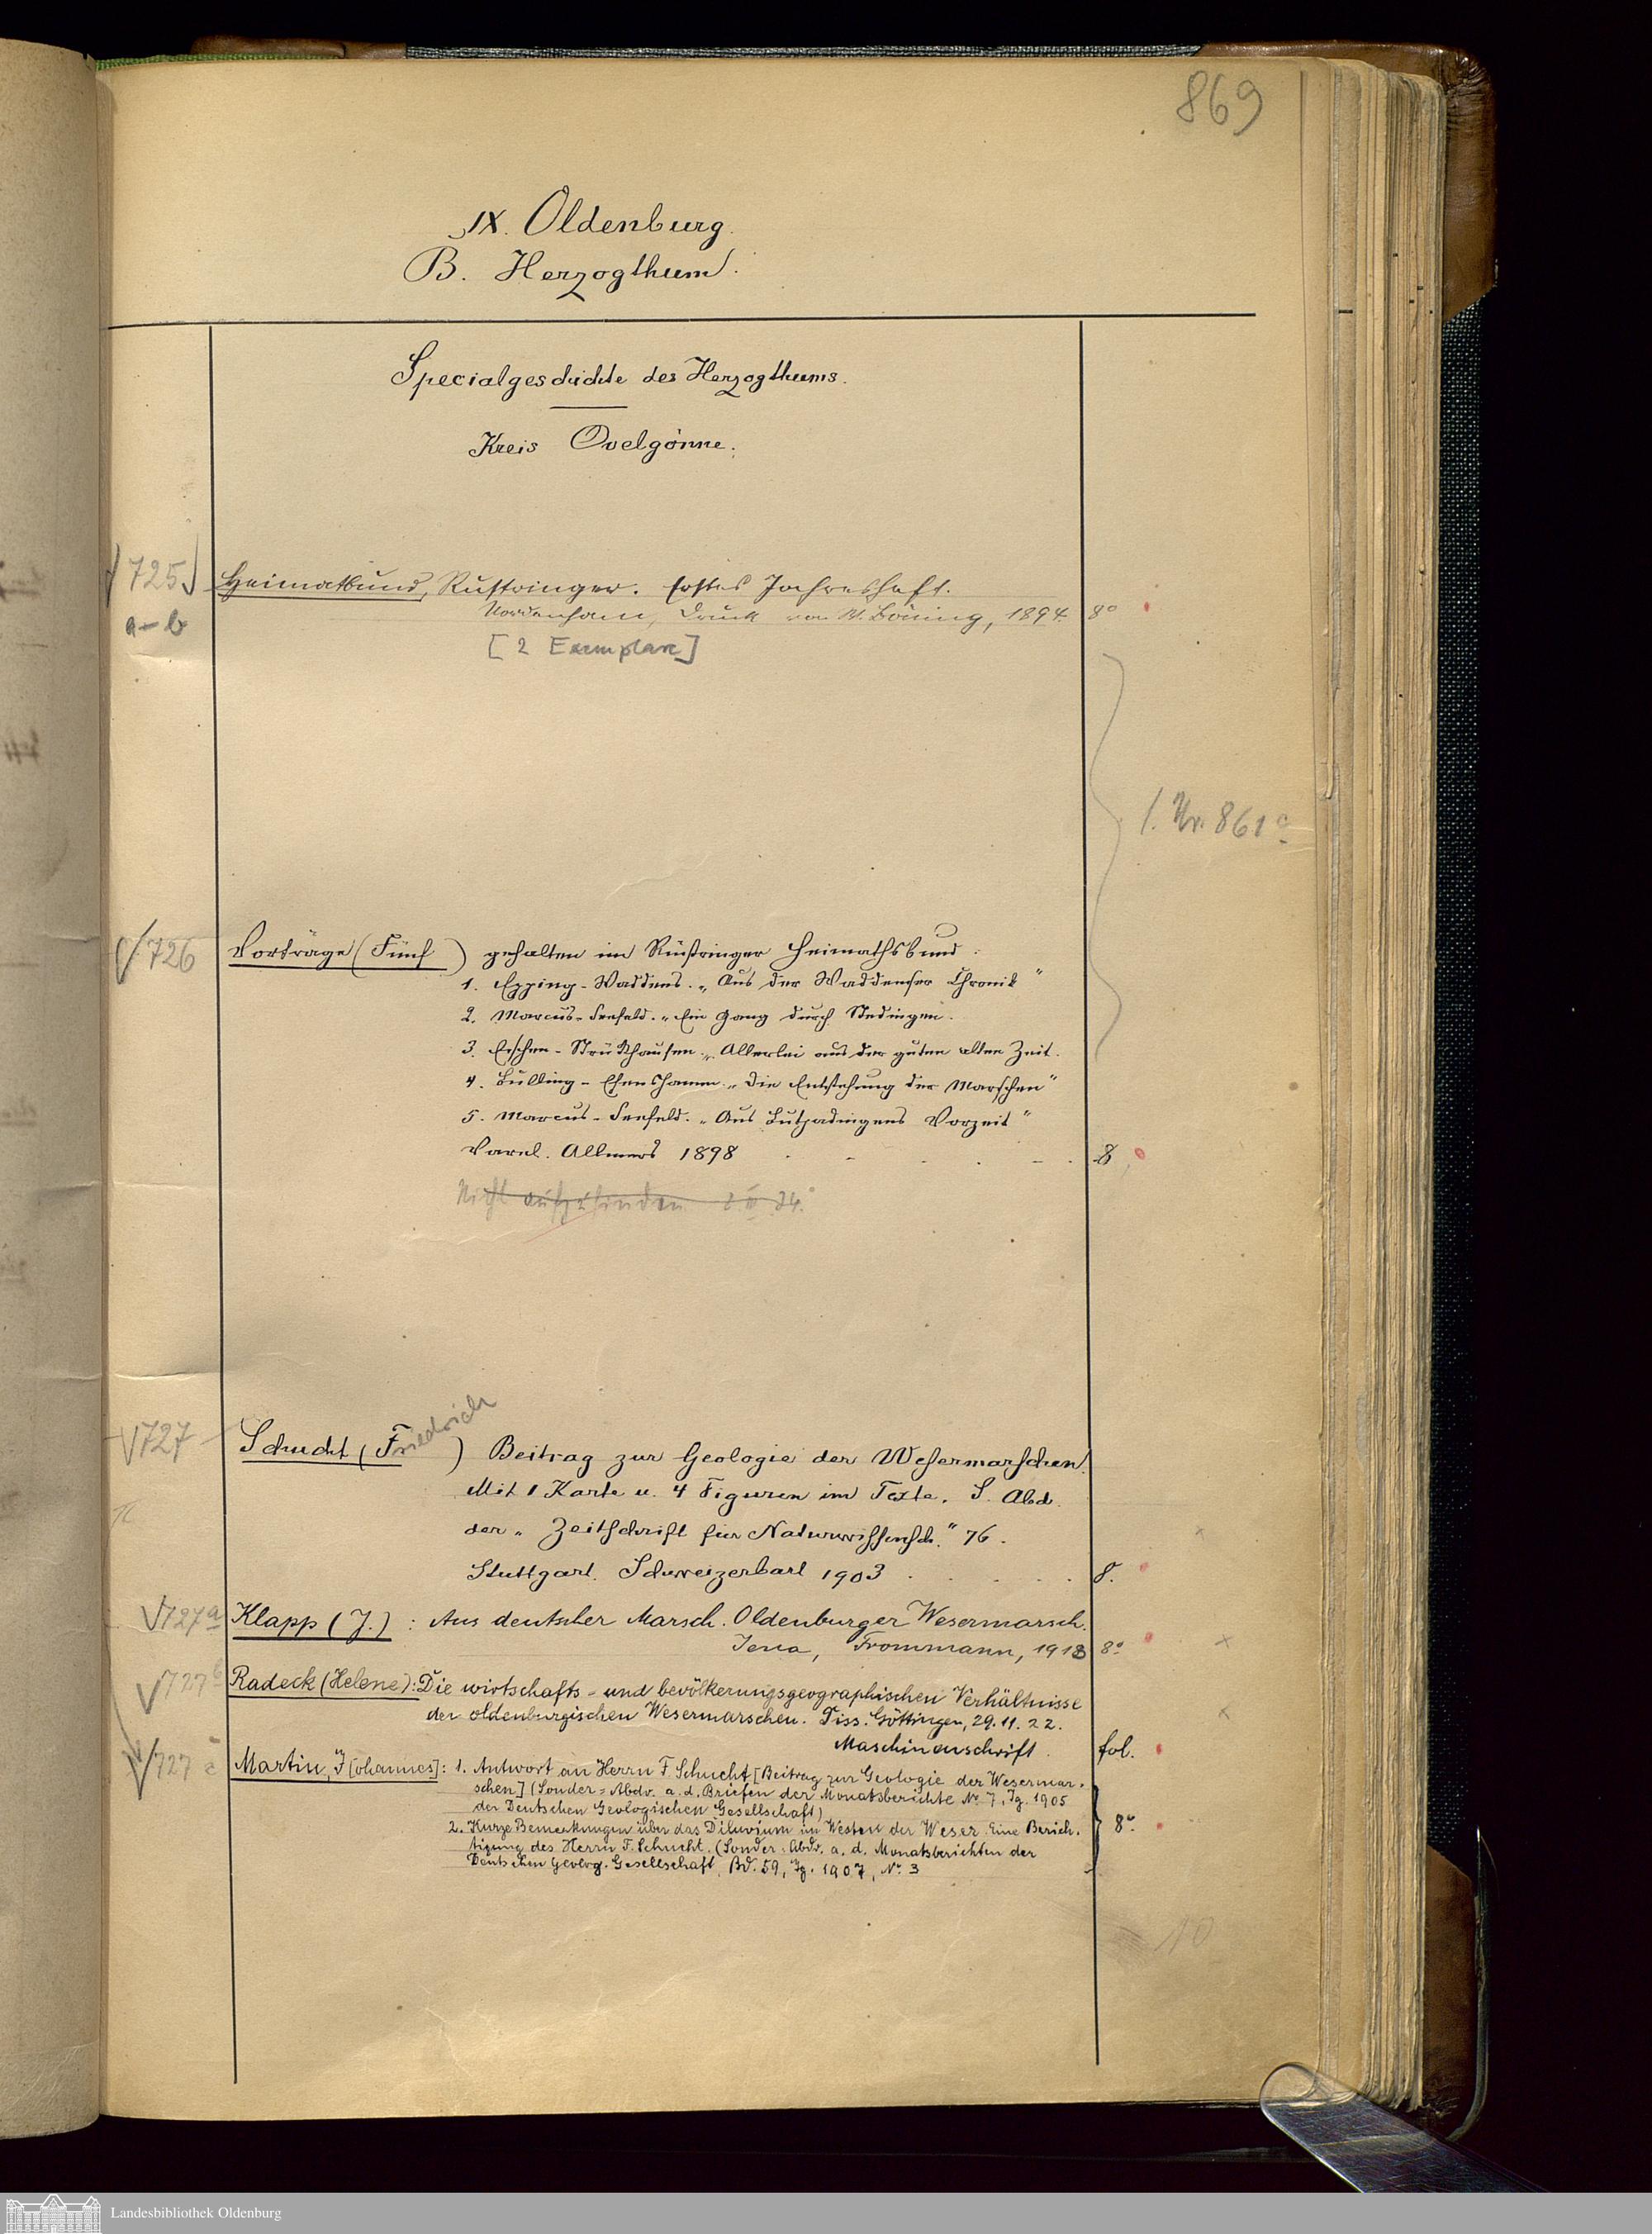 869
IX. Oldenburg.
B. Herzogthum.
Specialgeschichte des Herzogthums.
Kreis Ovelgönne.
725
a-b
Heimatbund, Rüstringer. Erstes Jahresheft.
Nordenham, Druck von W. Böning, 1894. 8°
[2 Exemplare]
Nr. 861c
726
Vorträge (Fünf) gehalten im Rüstringer Heimathsbund.
1. Epping-Waddens. „Aus der Waddenser Chronik"
2. Marcus-Seefeld. „Ein Gang durch Stedingen.
3. Eschen-Strückhausen. „Allerlei aus der guten alten Zeit.
4. Bulling-Esenshamm. „Die Entstehung der Marschen"
5. Marcus-Seefeld. „Aus Butjadingens Vorzeit"
Varel. Allmers 1898 8
Nicht aufzufinden
727
Schucht (Friedrich) Beitrag zur Geologie der Wesermarschen.
Mit 1 Karte u. 4 Figuren im Texte. S. Abd.
der „Zeitschrift für Naturwissensch." 76.
Stuttgart. Schweizerbart 1903 8.
727a
Klapp (J.): Aus deutscher Marsch. Oldenburger Wesermarsch.
Jena, Frommann, 1913 8°
727b
Radeck (Helene): Die wirtschafts- und bevölkerungsgeographischen Verhältnisse
der oldenburgischen Wesermarschen. Diss. Göttingen, 29.11.22.
Maschinenschrift. fol.
727c
Martin, J[ohannes]: 1. Antwort an Herrn F Schucht [Beitrag zur Geologie der Wesermar-
schen] (Sonder-Abdr. a. d. Briefen der Monatsberichte No 7, Jg. 1905
der Deutschen Geologischen Gesellschaft)
2. Kurze Bemerkungen über das Diluvium im Westen der Weser. Eine Berich-
tigung des Herrn F. Schucht. (Sonder-Abdr. a. d. Monatsberichten der
Deutschen Geolog. Gesellschaft, Bd. 59, Jg. 1907, No. 3
8°
10
Landesbibliothek Oldenburg